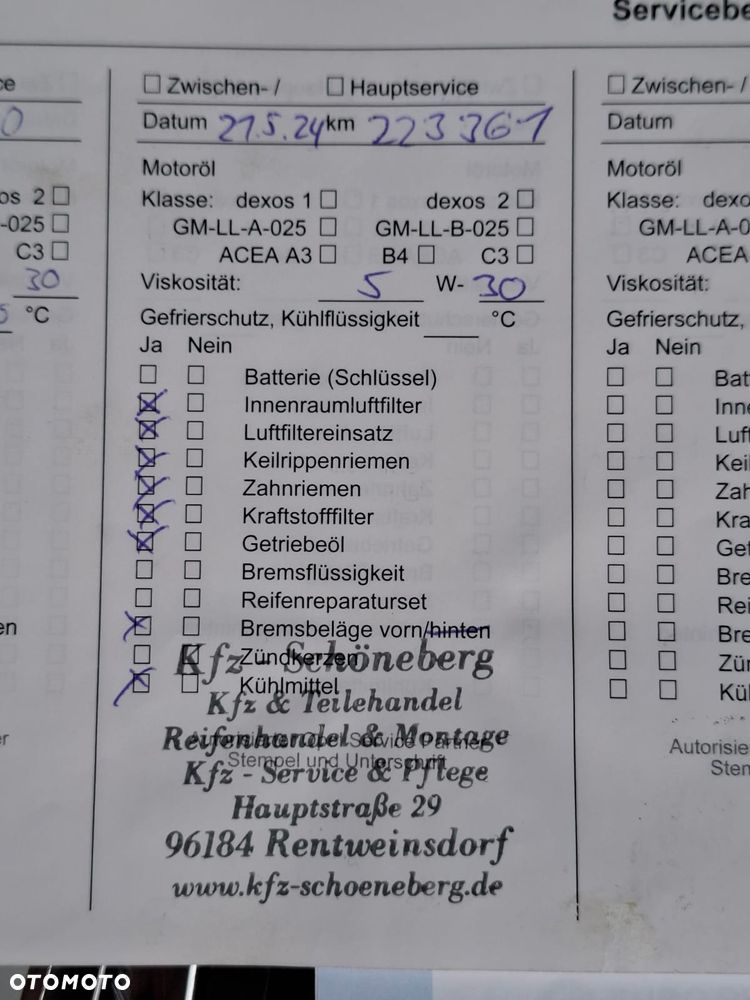 Servicebe
ce ☐ Zwischen- / ☐ Hauptservice ☐ Zwischen- /
0 Datum 21.5.24 km 223361 Datum
Motoröl Motoröl
os 2 ☐ Klasse: dexos 1 ☐ dexos 2 ☐ Klasse: dexo
-025 ☐ GM-LL-A-025 ☐ GM-LL-B-025 ☐ GM-LL-A-0
C3 ☐ ACEA A3 ☐ B4 ☐ C3 ☐ ACEA
30 Viskosität: 5 W- 30 Viskosität:
°C Gefrierschutz, Kühlflüssigkeit °C Gefrierschutz,
Ja Nein Ja Nein
☐ ☐ Batterie (Schlüssel) ☐ ☐ Bat
☒ ☐ Innenraumluftfilter ☐ ☐ Inne
☒ ☐ Luftfiltereinsatz ☐ ☐ Luf
☒ ☐ Keilrippenriemen ☐ ☐ Kei
☒ ☐ Zahnriemen ☐ ☐ Zah
☒ ☐ Kraftstofffilter ☐ ☐ Kra
☒ ☐ Getriebeöl ☐ ☐ Get
☐ ☐ Bremsflüssigkeit ☐ ☐ Bre
☐ ☐ Reifenreparaturset ☐ ☐ Rei
en ☒ ☐ Bremsbeläge vorn/hinten ☐ ☐ Bre
☐ ☐ Zündkerzen ☐ ☐ Zür
Kfz - Schöneberg
☒ ☐ Kühlmittel ☐ ☐ Küh
Kfz & Teilehandel
Reifenhandel & Montage
er Autorisierter Opel Service Partner Autorisie
Stempel und Unterschrift Sten
Kfz - Service & Pflege
Hauptstraße 29
96184 Rentweinsdorf
www.kfz-schoeneberg.de
OTOMOTO